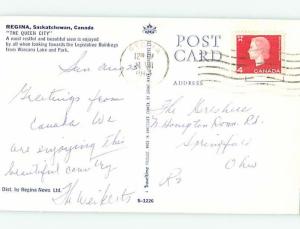 REGINA, Saskatchewan, Canada
"THE QUEEN CITY"
A most restful and beautiful scene is enjoyed
by all when looking towards the Legislative Buildings
from Wascana Lake and Park.
POST CARD
ADDRESS
CANADA
4
Sun Aug 23
Greetings from
Canada We
are enjoying this
beautiful country
The Weikerts
The Kershes
Rd.
Springfield
Ohio
Dist. by Regina News Ltd.
S-1226